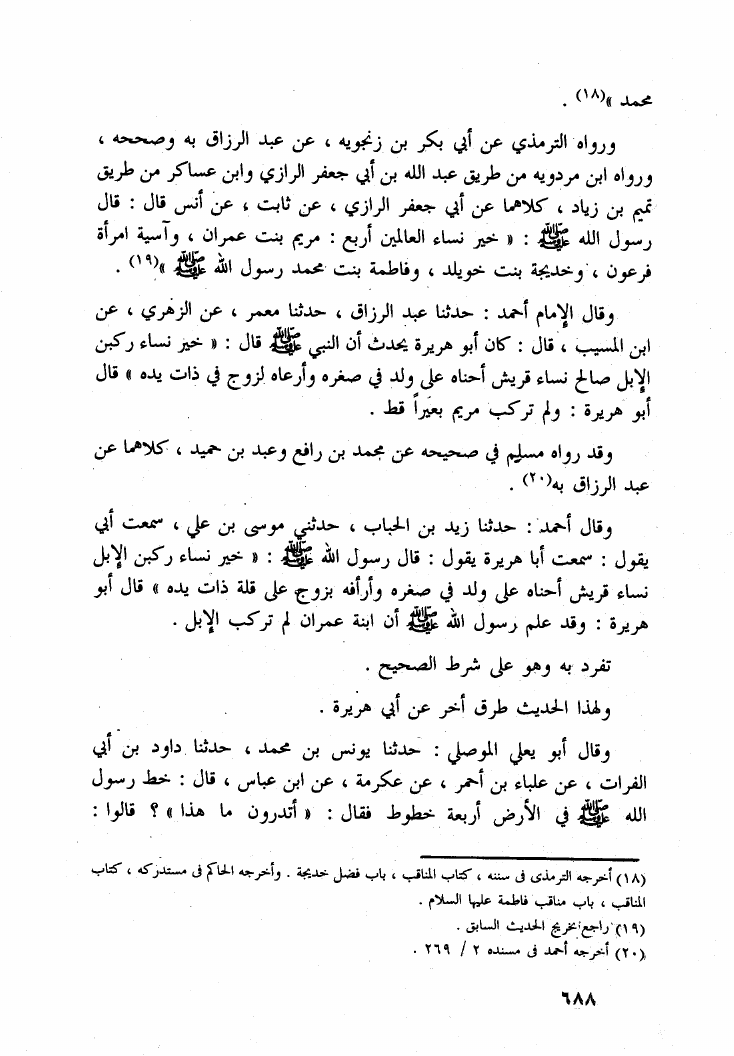 محمد »(١٨) .
ورواه الترمذي عن أبي بكر بن زنجويه ، عن عبد الرزاق به وصححه ،
ورواه ابن مردويه من طريق عبد الله بن أبي جعفر الرازي وابن عساكر من طريق
تميم بن زياد ، كلاهما عن أبي جعفر الرازي ، عن ثابت ، عن أنس قال : قال
رسول الله ﷺ : « خير نساء العالمين أربع : مريم بنت عمران ، وآسية امرأة
فرعون ، وخديجة بنت خويلد ، وفاطمة بنت محمد رسول الله ﷺ »(١٩) .
وقال الإمام أحمد : حدثنا عبد الرزاق ، حدثنا معمر ، عن الزهري ، عن
ابن المسيب ، قال : كان أبو هريرة يحدث أن النبي ﷺ قال : « خير نساء ركبن
الإبل صالح نساء قريش أحناه على ولد في صغره وأرعاه لزوج في ذات يده » قال
أبو هريرة : ولم تركب مريم بعيراً قط .
وقد رواه مسلم في صحيحه عن محمد بن رافع وعبد بن حميد ، كلاهما عن
عبد الرزاق به(٢٠) .
وقال أحمد : حدثنا زيد بن الحباب ، حدثني موسى بن علي ، سمعت أبي
يقول : سمعت أبا هريرة يقول : قال رسول الله ﷺ : « خير نساء ركبن الإبل
نساء قريش أحناه على ولد في صغره وأرأفه بزوج على قلة ذات يده » قال أبو
هريرة : وقد علم رسول الله ﷺ أن ابنة عمران لم تركب الإبل .
تفرد به وهو على شرط الصحيح .
ولهذا الحديث طرق أخر عن أبي هريرة .
وقال أبو يعلي الموصلي : حدثنا يونس بن محمد ، حدثنا داود بن أبي
الفرات ، عن علباء بن أحمر ، عن عكرمة ، عن ابن عباس ، قال : خط رسول
الله ﷺ في الأرض أربعة خطوط فقال : « أتدرون ما هذا » ؟ قالوا :
(١٨) أخرجه الترمذى فى سننه ، كتاب المناقب ، باب فضل خديجة . وأخرجه الحاكم فى مستدركه ، كتاب
المناقب ، باب مناقب فاطمة عليها السلام .
(١٩) راجع تخريج الحديث السابق .
(٢٠) أخرجه أحمد فى مسنده ٢ / ٢٦٩ .
٦٨٨